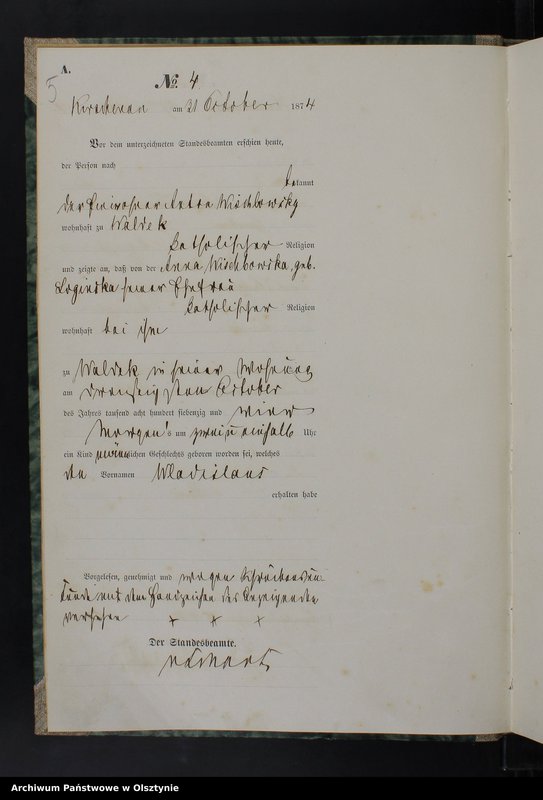 A.
5
No 4
Kirschenau am 31 October 1874
Vor dem unterzeichneten Standesbeamten erschien heute,
der Person nach
bekannt
der Einwohner Wischbowsky
wohnhaft zu Waldek
katholischer Religion
und zeigte an, daß von der Anna Wischbowska, geb.
Loginska seiner Ehefrau
katholischer Religion
wohnhaft bei ihm
zu Waldek in seiner Wohnung
am dreißigsten October
des Jahres tausend acht hundert siebenzig und vier
Morgens um zwei u einhalb Uhr
ein Kind männlichen Geschlechts geboren worden sei, welches
den Vornamen Wladislaus
erhalten habe
Vorgelesen, genehmigt und wegen Schreibensun-
kunde mit dem Handzeichen des Anzeigenden
versehen + + +
Der Standesbeamte.
Archiwum Państwowe w Olsztynie